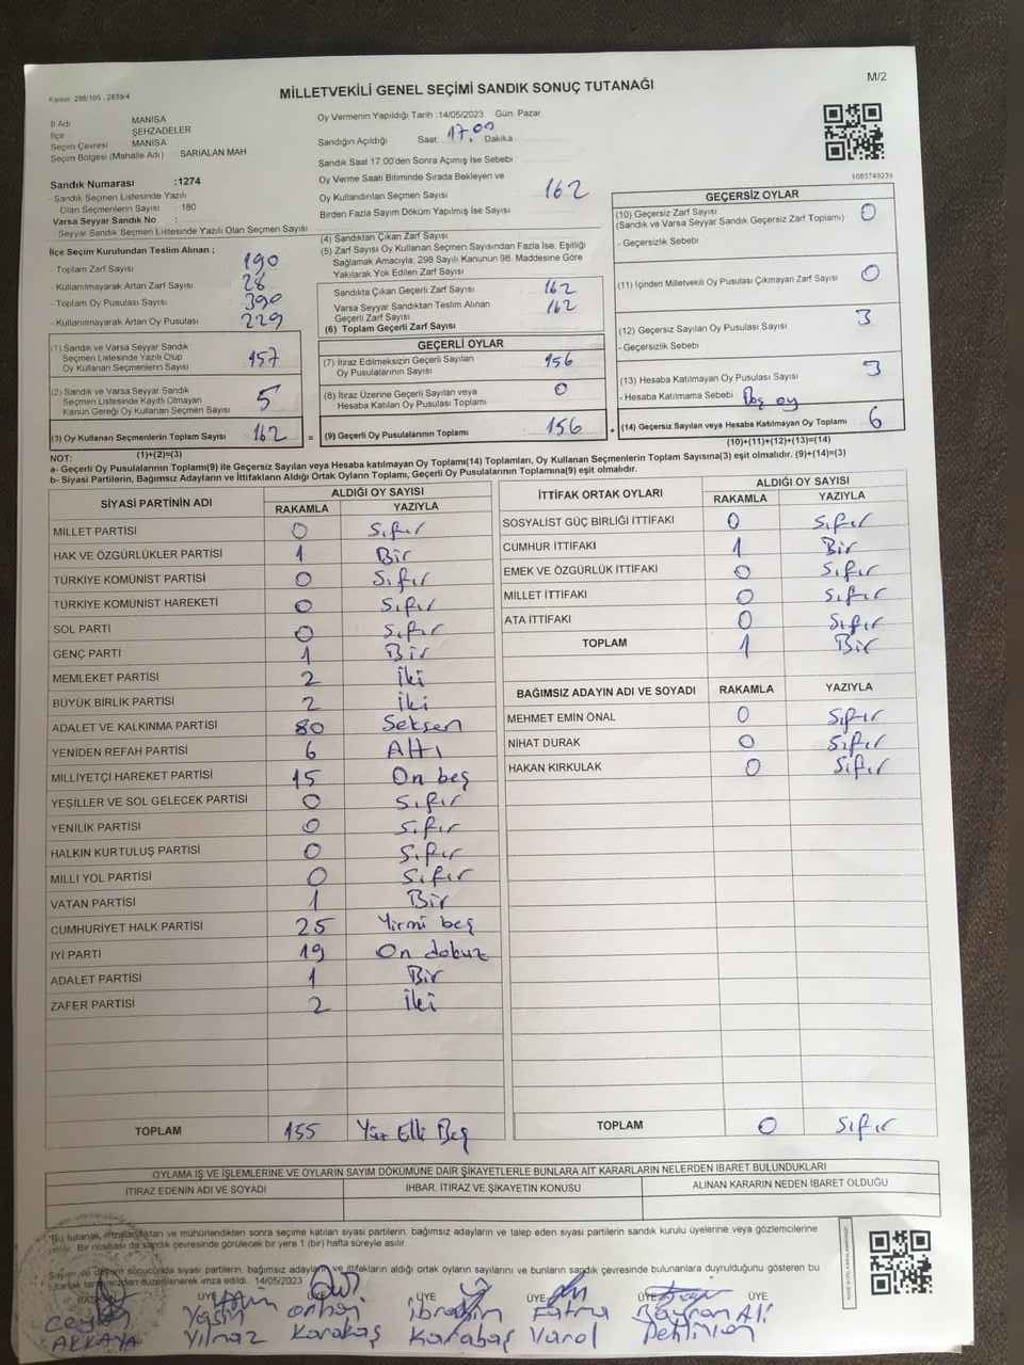 M/2
Kanun: 298/105 , 2839/4
MİLLETVEKİLİ GENEL SEÇİMİ SANDIK SONUÇ TUTANAĞI
İl Adı MANİSA
İlçe ŞEHZADELER
Seçim Çevresi MANİSA
Seçim Bölgesi (Mahalle Adı) SARIALAN MAH
Oy Vermenin Yapıldığı Tarih :14/05/2023 Gün: Pazar
Sandığın Açıldığı Saat 17.00 Dakika
Sandık Saat 17:00'den Sonra Açımış İse Sebebi
Oy Verme Saati Bitiminde Sırada Bekleyen ve
Oy Kullandırılan Seçmen Sayısı 162
Birden Fazla Sayım Döküm Yapılmış İse Sayısı
Sandık Numarası :1274
- Sandık Seçmen Listesinde Yazılı
Olan Seçmenlerin Sayısı : 180
Varsa Seyyar Sandık No :
Seyyar Sandık Seçmen Listesinde Yazılı Olan Seçmen Sayısı
İlçe Seçim Kurulundan Teslim Alınan ;
- Toplam Zarf Sayısı 190
- Kullanılmayarak Artan Zarf Sayısı 28
- Toplam Oy Pusulası Sayısı 390
- Kullanılmayarak Artan Oy Pusulası 229
(1) Sandık ve Varsa Seyyar Sandık
Seçmen Listesinde Yazılı Olup
Oy Kullanan Seçmenlerin Sayısı 157
(2) Sandık ve Varsa Seyyar Sandık
Seçmen Listesinde Kayıtlı Olmayan
Kanun Gereği Oy Kullanan Seçmen Sayısı 5
(3) Oy Kullanan Seçmenlerin Toplam Sayısı 162 =
(1)+(2)=(3)
(4) Sandıktan Çıkan Zarf Sayısı
(5) Zarf Sayısı Oy Kullanan Seçmen Sayısından Fazla İse, Eşitliği
Sağlamak Amacıyla, 298 Sayılı Kanunun 98. Maddesine Göre
Yakılarak Yok Edilen Zarf Sayısı
Sandıkta Çıkan Geçerli Zarf Sayısı 162
Varsa Seyyar Sandıktan Teslim Alınan 162
Geçerli Zarf Sayısı
(6) Toplam Geçerli Zarf Sayısı
GEÇERLİ OYLAR
(7) İtiraz Edilmeksizin Geçerli Sayılan 156
Oy Pusulalarının Sayısı
(8) İtiraz Üzerine Geçerli Sayılan veya 0
Hesaba Katılan Oy Pusulası Toplamı
(9) Geçerli Oy Pusulalarının Toplamı 156 +
1083749239
GEÇERSİZ OYLAR
(10) Geçersiz Zarf Sayısı 0
(Sandık ve Varsa Seyyar Sandık Geçersiz Zarf Toplamı)
- Geçersizlik Sebebi
(11) İçinden Milletvekili Oy Pusulası Çıkmayan Zarf Sayısı 0
(12) Geçersiz Sayılan Oy Pusulası Sayısı 3
- Geçersizlik Sebebi
(13) Hesaba Katılmayan Oy Pusulası Sayısı 3
- Hesaba Katılmama Sebebi Boş oy
(14) Geçersiz Sayılan veya Hesaba Katılmayan Oy Toplamı 6
(10)+(11)+(12)+(13)=(14)
NOT:
a- Geçerli Oy Pusulalarının Toplamı(9) ile Geçersiz Sayılan veya Hesaba katılmayan Oy Toplamı(14) Toplamları, Oy Kullanan Seçmenlerin Toplam Sayısına(3) eşit olmalıdır. (9)+(14)=(3)
b- Siyasi Partilerin, Bağımsız Adayların ve İttifakların Aldığı Ortak Oyların Toplamı, Geçerli Oy Pusulalarının Toplamına(9) eşit olmalıdır.
SİYASİ PARTİNİN ADI ALDIĞI OY SAYISI
RAKAMLA YAZIYLA
MİLLET PARTİSİ 0 Sıfır
HAK VE ÖZGÜRLÜKLER PARTİSİ 1 Bir
TÜRKİYE KOMÜNİST PARTİSİ 0 Sıfır
TÜRKİYE KOMÜNİST HAREKETİ 0 Sıfır
SOL PARTİ 0 Sıfır
GENÇ PARTİ 1 Bir
MEMLEKET PARTİSİ 2 İki
BÜYÜK BİRLİK PARTİSİ 2 İki
ADALET VE KALKINMA PARTİSİ 80 Seksen
YENİDEN REFAH PARTİSİ 6 Altı
MİLLİYETÇİ HAREKET PARTİSİ 15 On beş
YEŞİLLER VE SOL GELECEK PARTİSİ 0 Sıfır
YENİLİK PARTİSİ 0 Sıfır
HALKIN KURTULUŞ PARTİSİ 0 Sıfır
MİLLİ YOL PARTİSİ 0 Sıfır
VATAN PARTİSİ 1 Bir
CUMHURİYET HALK PARTİSİ 25 Yirmi beş
İYİ PARTİ 19 On dokuz
ADALET PARTİSİ 1 Bir
ZAFER PARTİSİ 2 İki
TOPLAM 155 Yüz Elli Beş
İTTİFAK ORTAK OYLARI ALDIĞI OY SAYISI
RAKAMLA YAZIYLA
SOSYALİST GÜÇ BİRLİĞİ İTTİFAKI 0 Sıfır
CUMHUR İTTİFAKI 1 Bir
EMEK VE ÖZGÜRLÜK İTTİFAKI 0 Sıfır
MİLLET İTTİFAKI 0 Sıfır
ATA İTTİFAKI 0 Sıfır
TOPLAM 1 Bir
BAĞIMSIZ ADAYIN ADI VE SOYADI RAKAMLA YAZIYLA
MEHMET EMİN ÖNAL 0 Sıfır
NİHAT DURAK 0 Sıfır
HAKAN KIRKULAK 0 Sıfır
TOPLAM 0 Sıfır
OYLAMA İŞ VE İŞLEMLERİNE VE OYLARIN SAYIM DÖKÜMÜNE DAİR ŞİKAYETLERLE BUNLARA AİT KARARLARIN NELERDEN İBARET BULUNDUKLARI
İTİRAZ EDENİN ADI VE SOYADI İHBAR, İTİRAZ VE ŞİKAYETİN KONUSU ALINAN KARARIN NEDEN İBARET OLDUĞU
"Bu tutanak, imzalandıktan ve mühürlendikten sonra seçime katılan siyasi partilerin, bağımsız adayların ve talep eden siyasi partilerin sandık kurulu üyelerine veya gözlemcilerine
verilir. Bir nüshası da sandık çevresinde görülecek bir yere 1 (bir) hafta süreyle asılır.
Sayım ve döküm sonucunda siyasi partilerin, bağımsız adayların ve ittifakların aldığı ortak oyların sayılarını ve bunların sandık çevresinde bulunanlara duyrulduğunu gösteren bu
tutanak tarafımızdan düzenlenerek imza edildi. 14/05/2023
ÜYE ÜYE ÜYE ÜYE ÜYE
Ceylan Yasin Orhan İbrahim Fatma Bayram Ali
AKKAYA Yılmaz Karakaş Karabaş Varol